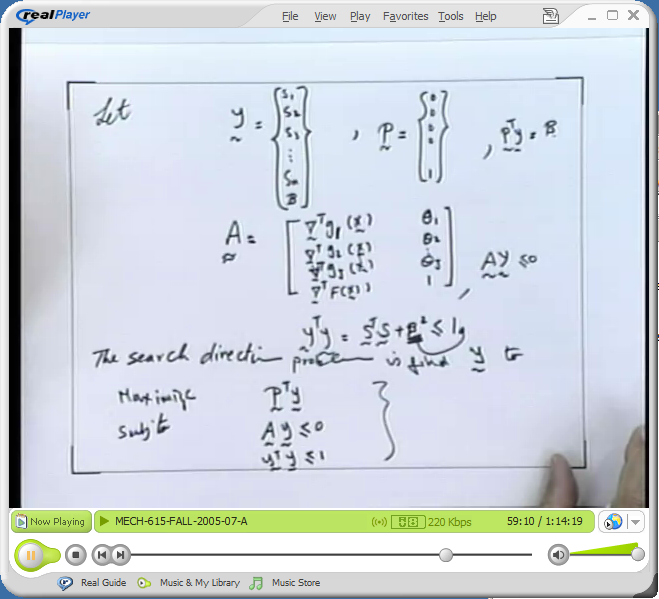 realPlayer
File View Play Favorites Tools Help
Let y = { S1 S2 S3 ⋮ Sn B } , P = { 0 0 0 0 ⋮ 1 } , PᵀY = B
A = [ ∇ᵀg1(x) θ1
∇ᵀg2(x) θ2
∇ᵀg3(x) θ3
∇ᵀF(x) 1 ] , AY ≤0
yᵀy = SᵀS + B² ≤ 1
The search direction problem is find y to
Maximize Pᵀy
Subj to Ay ≤0
yᵀy ≤1
Now Playing MECH-615-FALL-2005-07-A 220 Kbps 59:10 / 1:14:19
Real Guide Music & My Library Music Store